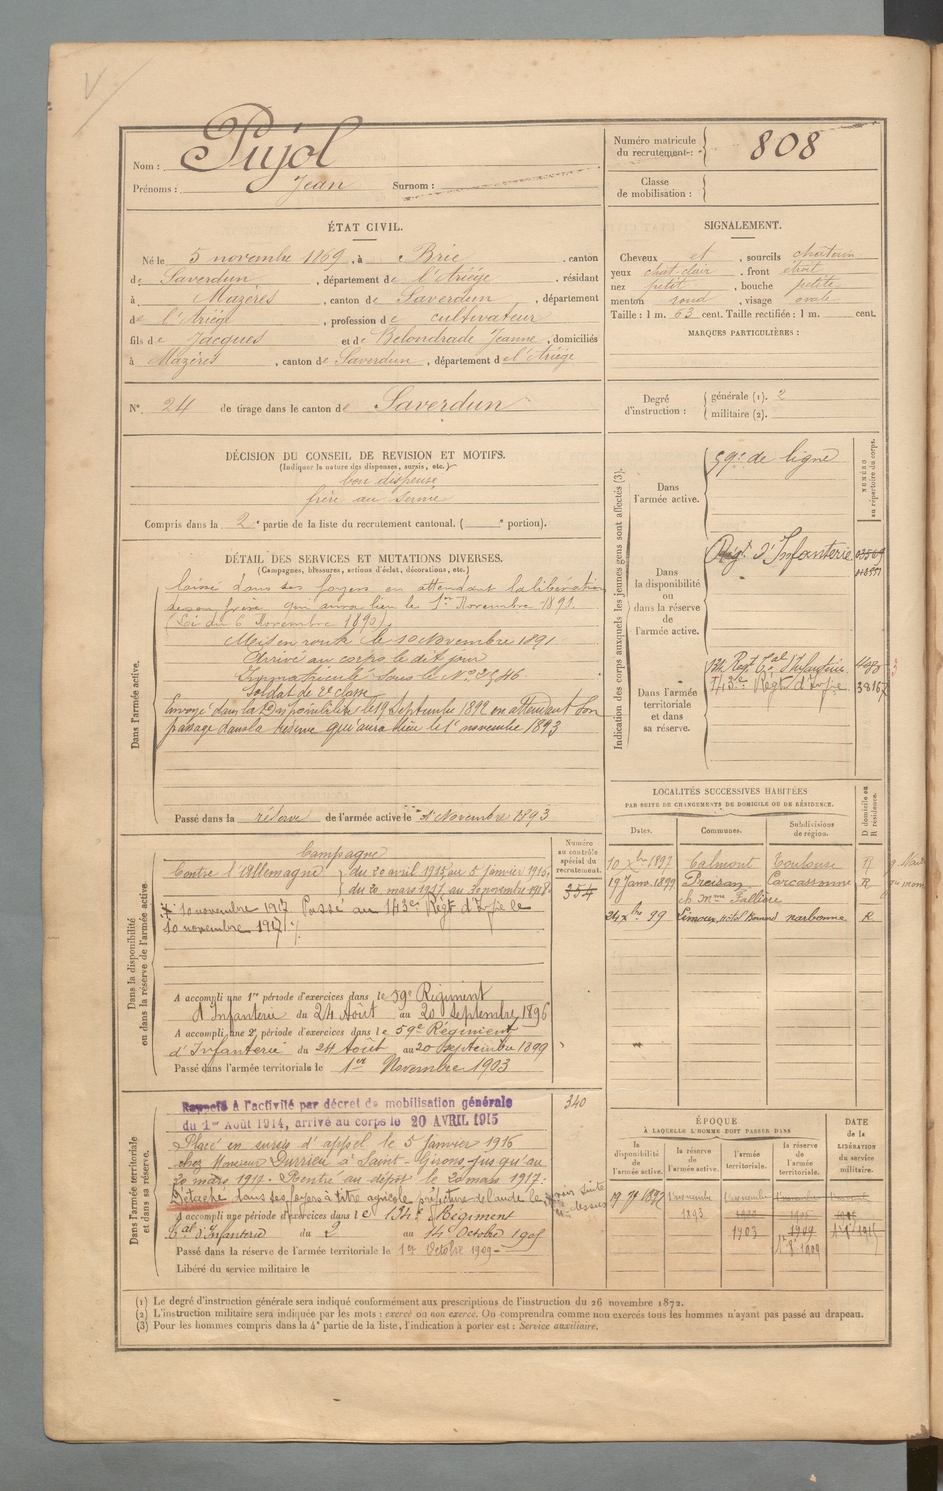 Nom : Pujol
Prénoms : Jean Surnom :
Numéro matricule
du recrutement : 808
Classe
de mobilisation :
ÉTAT CIVIL.
Né le 5 novembre 1869, à Brie, canton
de Saverdun, département de l'Ariège, résidant
à Mazères, canton de Saverdun, département
de l'Ariège, profession de cultivateur
fils de Jacques et de Belondrade Jeanne, domiciliés
à Mazères, canton de Saverdun, département de l'Ariège
N°. 24 de tirage dans le canton de Saverdun
SIGNALEMENT.
Cheveux et, sourcils chatain
yeux chat-clair, front étroit
nez petit, bouche petite
menton rond, visage ovale
Taille : 1 m. 63 cent. Taille rectifiée : 1 m. cent.
MARQUES PARTICULIÈRES :
Degré
d'instruction :
générale (1). 2
militaire (2).
DÉCISION DU CONSEIL DE REVISION ET MOTIFS.
(Indiquer la nature des dispenses, sursis, etc.)
bon dispense
frère au service
Compris dans la 2e partie de la liste du recrutement cantonal. ( e portion).
DÉTAIL DES SERVICES ET MUTATIONS DIVERSES.
(Campagnes, blessures, actions d'éclat, décorations, etc.)
Dans l'armée active.
laissé dans ses foyers en attendant la libération
de son frère qui aura lieu le 1er Novembre 1891.
(Loi du 6 Novembre 1890)
Mis en route le 10 Novembre 1891
Arrivé au corps le dit jour
Immatriculé sous le No
Soldat de 2e classe
Envoyé dans la Disponibilité le 19 Septembre 1892 en attendant son
passage dans la réserve qui aura lieu le 1er novembre 1893
Passé dans la réserve de l'armée active le 1er Novembre 1893
Indication des corps auxquels les jeunes gens sont affectés (3).
NUMÉRO
au répertoire du corps.
Dans
l'armée active.
59e de ligne
Dans
la disponibilité
ou
dans la réserve
de
l'armée active.
Régt d'Infanterie
Dans l'armée
territoriale
et dans
sa réserve.
134 Regt Tal d'Infanterie
143e Régt d'Infie 38167
LOCALITÉS SUCCESSIVES HABITÉES
PAR SUITE DE CHANGEMENTS DE DOMICILE OU DE RÉSIDENCE.
Dates. Communes. Subdivisions
de région. D domicile ou
R résidence.
10 Xbre 1897 Calmont Toulouse R
19 Janv. 1899 Preixan Carcassonne R
ch Mme Fallière
24 Xbre 99 Limoux, Hôtel narbonne R
Dans la disponibilité
ou dans la réserve de l'armée active
Numéro
au contrôle
spécial du
recrutement.
354
Campagne
Contre l'Allemagne du 20 avril 1915 au 5 janvier 1916,
du 20 mars 1917 au 30 novembre 1918
10 novembre 1917 Passé au 143e Régt d'Infie le
10 novembre 1917
A accompli une 1re période d'exercices dans le 59e Régiment
d'Infanterie du 24 Août au 20 Septembre 1896
A accompli une 2e période d'exercices dans le 59e Régiment
d'Infanterie du 24 Août au 20 Septembre 1899
Passé dans l'armée territoriale le 1er Novembre 1903
Dans l'armée territoriale
et dans sa réserve.
340
Rappelé à l'activité par décret de mobilisation générale
du 1er Août 1914, arrivé au corps le 20 AVRIL 1915
Placé en sursis d'appel le 5 Janvier 1916
chez Monsieur Durrieu à Saint-Girons jusqu'au
20 mars 1917. Rentré au dépôt le 20 mars 1917.
Détaché dans ses foyers à titre agricole préfecture de l'aude le
voir suite
ci-dessus
A accompli une période d'exercices dans le 134e Régiment
Tal d'Infanterie du 2 au 14 Octobre 1905
Passé dans la réserve de l'armée territoriale le 1er Octobre 1909
Libéré du service militaire le
ÉPOQUE
À LAQUELLE L'HOMME DOIT PASSER DANS
la
disponibilité
de
l'armée active.
la réserve
de
l'armée active.
l'armée
territoriale.
la réserve
de
l'armée
territoriale.
DATE
de la
LIBÉRATION
du service
militaire.
1er novembre
1893
1903
1909
1er 8bre 1909
(1) Le degré d'instruction générale sera indiqué conformément aux prescriptions de l'instruction du 26 novembre 1872.
(2) L'instruction militaire sera indiquée par les mots : exercé ou non exercé. On comprendra comme non exercés tous les hommes n'ayant pas passé au drapeau.
(3) Pour les hommes compris dans la 4e partie de la liste, l'indication à porter est : Service auxiliaire.